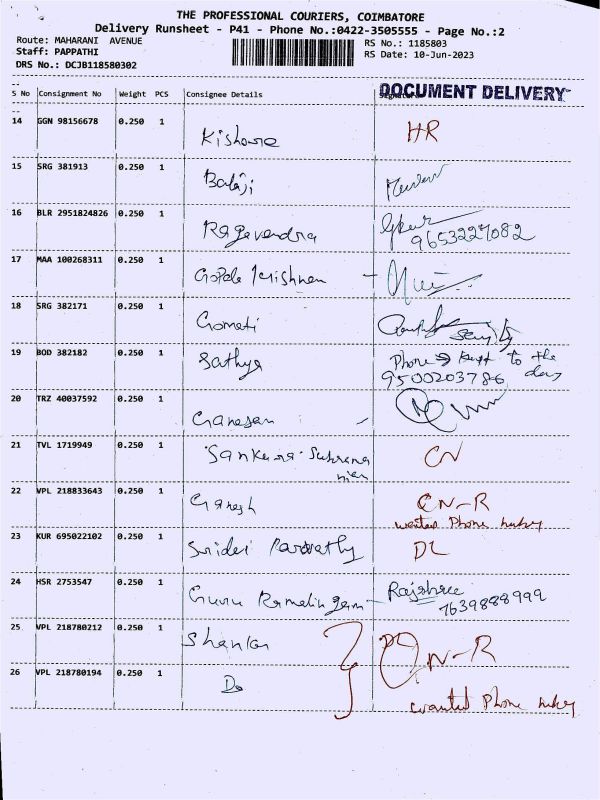 THE PROFESSIONAL COURIERS, COIMBATORE
Delivery Runsheet - P41 - Phone No.:0422-3505555 - Page No.:2
Route: MAHARANI AVENUE
RS No.: 1185803
Staff: PAPPATHI
RS Date: 10-Jun-2023
DRS No.: DCJB118580302
S No Consignment No Weight PCS Consignee Details
DOCUMENT DELIVERY
14 GGN 98156678 0.250 1 Kishore HR
15 SRG 381913 0.250 1 Balaji
16 BLR 2951824826 0.250 1 Ragavendra
9653227082
17 MAA 100268311 0.250 1 Gopala Krishnan -
18 SRG 382171 0.250 1 Gomati
19 BOD 382182 0.250 1 Sathya Phone → kept to the
9500203786 door
20 TRZ 40037592 0.250 1 Ganesan
21 TVL 1719949 0.250 1 Sankara Subrama CN
nian
22 VPL 218833643 0.250 1 Ganesh CN-R
wanted Phone
23 KUR 695022102 0.250 1 Sridevi Parvathy DL
24 HSR 2753547 0.250 1 Guru Ramalingam - Rajshree
7639888999
25 VPL 218780212 0.250 1 Shankar
N-R
26 VPL 218780194 0.250 1 Do
wanted Phone